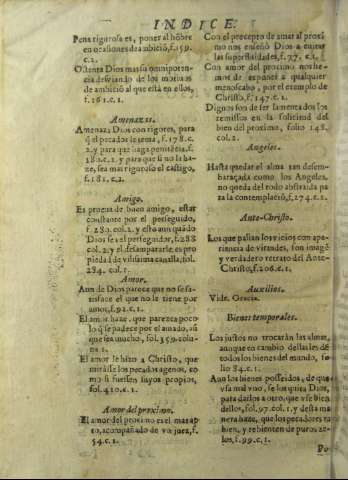 INDICE.
Pena rigurosa es, poner al hõbre
en ocasiones de ambiciõ, f.159.
c.2.
Ostenta Dios mas su omnipoten-
cia desviando de los motiuos
de ambiciõ al que està en ellos,
f.161.c.1.
Amenazas.
Amenaza Dios con rigores, para
q̃ el pecador le tema, f.178.c.
2. y para que haga penitẽcia, f.
182.c.2. y para que si no la ha-
ze, sea mas riguroso el castigo,
f.181.c.2.
Amigo.
Es prueua de buen amigo, estar
constante por el perseguido,
f.280. col.2. y esto aun quãdo
Dios se es el perseguidor, f.288
col.2. y el desampararle, es pro
piedad de vilissima canalla, fol.
284. col.1.
Amor.
Aun de Dios parece que no se sa-
tisface el que no le tiene por
amor, f.92.c.1.
El amor haze, que parezca poco
lo q̃ se padece por el amado, assi
que sea mucho, fol.359. colum-
na 1.
El amor le hizo a Christo, que
mirasse los pecados agenos, co-
mo si fuessen suyos propios,
fol.410.c.1.
Amor del proximo.
El amor del proximo es el mas ap-
to, acompañado de vn juez, f.
54.c.1.
Con el precepto de amar al proxi-
mo nos enseñò Dios a euitar
las superfluidades, f.37. c.1.
Con amor del proximo nos he-
mos de esponer a qualquier
menoscabo, por el exemplo de
Christo, f.147.c.2.
Dignos son de ser lamentados los
remissos en la solicitud del
bien del proximo, folio 148.
col.2.
Angeles.
Hasta quedar el alma tan desem-
baraçada como los Angeles,
no queda del todo abstraida pa-
ra la contemplaciõ, f.274.c.2.
Ante-Christo.
Los que passan los vicios con apa-
riencia de virtudes, son image
y verdadero retrato del Ante-
Christo, f.206.c.1.
Auxilios.
Vide. Gracia.
Bienes temporales.
Los justos no trocaràn las almas,
aunque en cambio dellas les dè
todos los bienes del mundo, fo-
lio 84.c.1.
Aun los bienes posseidos, de que
vsa mal vno, se los quita Dios,
para darlos a otro, que vse bien
dellos, fol.97. col.1. y desta ma-
nera haze, que los pecadores ra
bien, y rebienten de puros ze-
los, f.99.c.1.